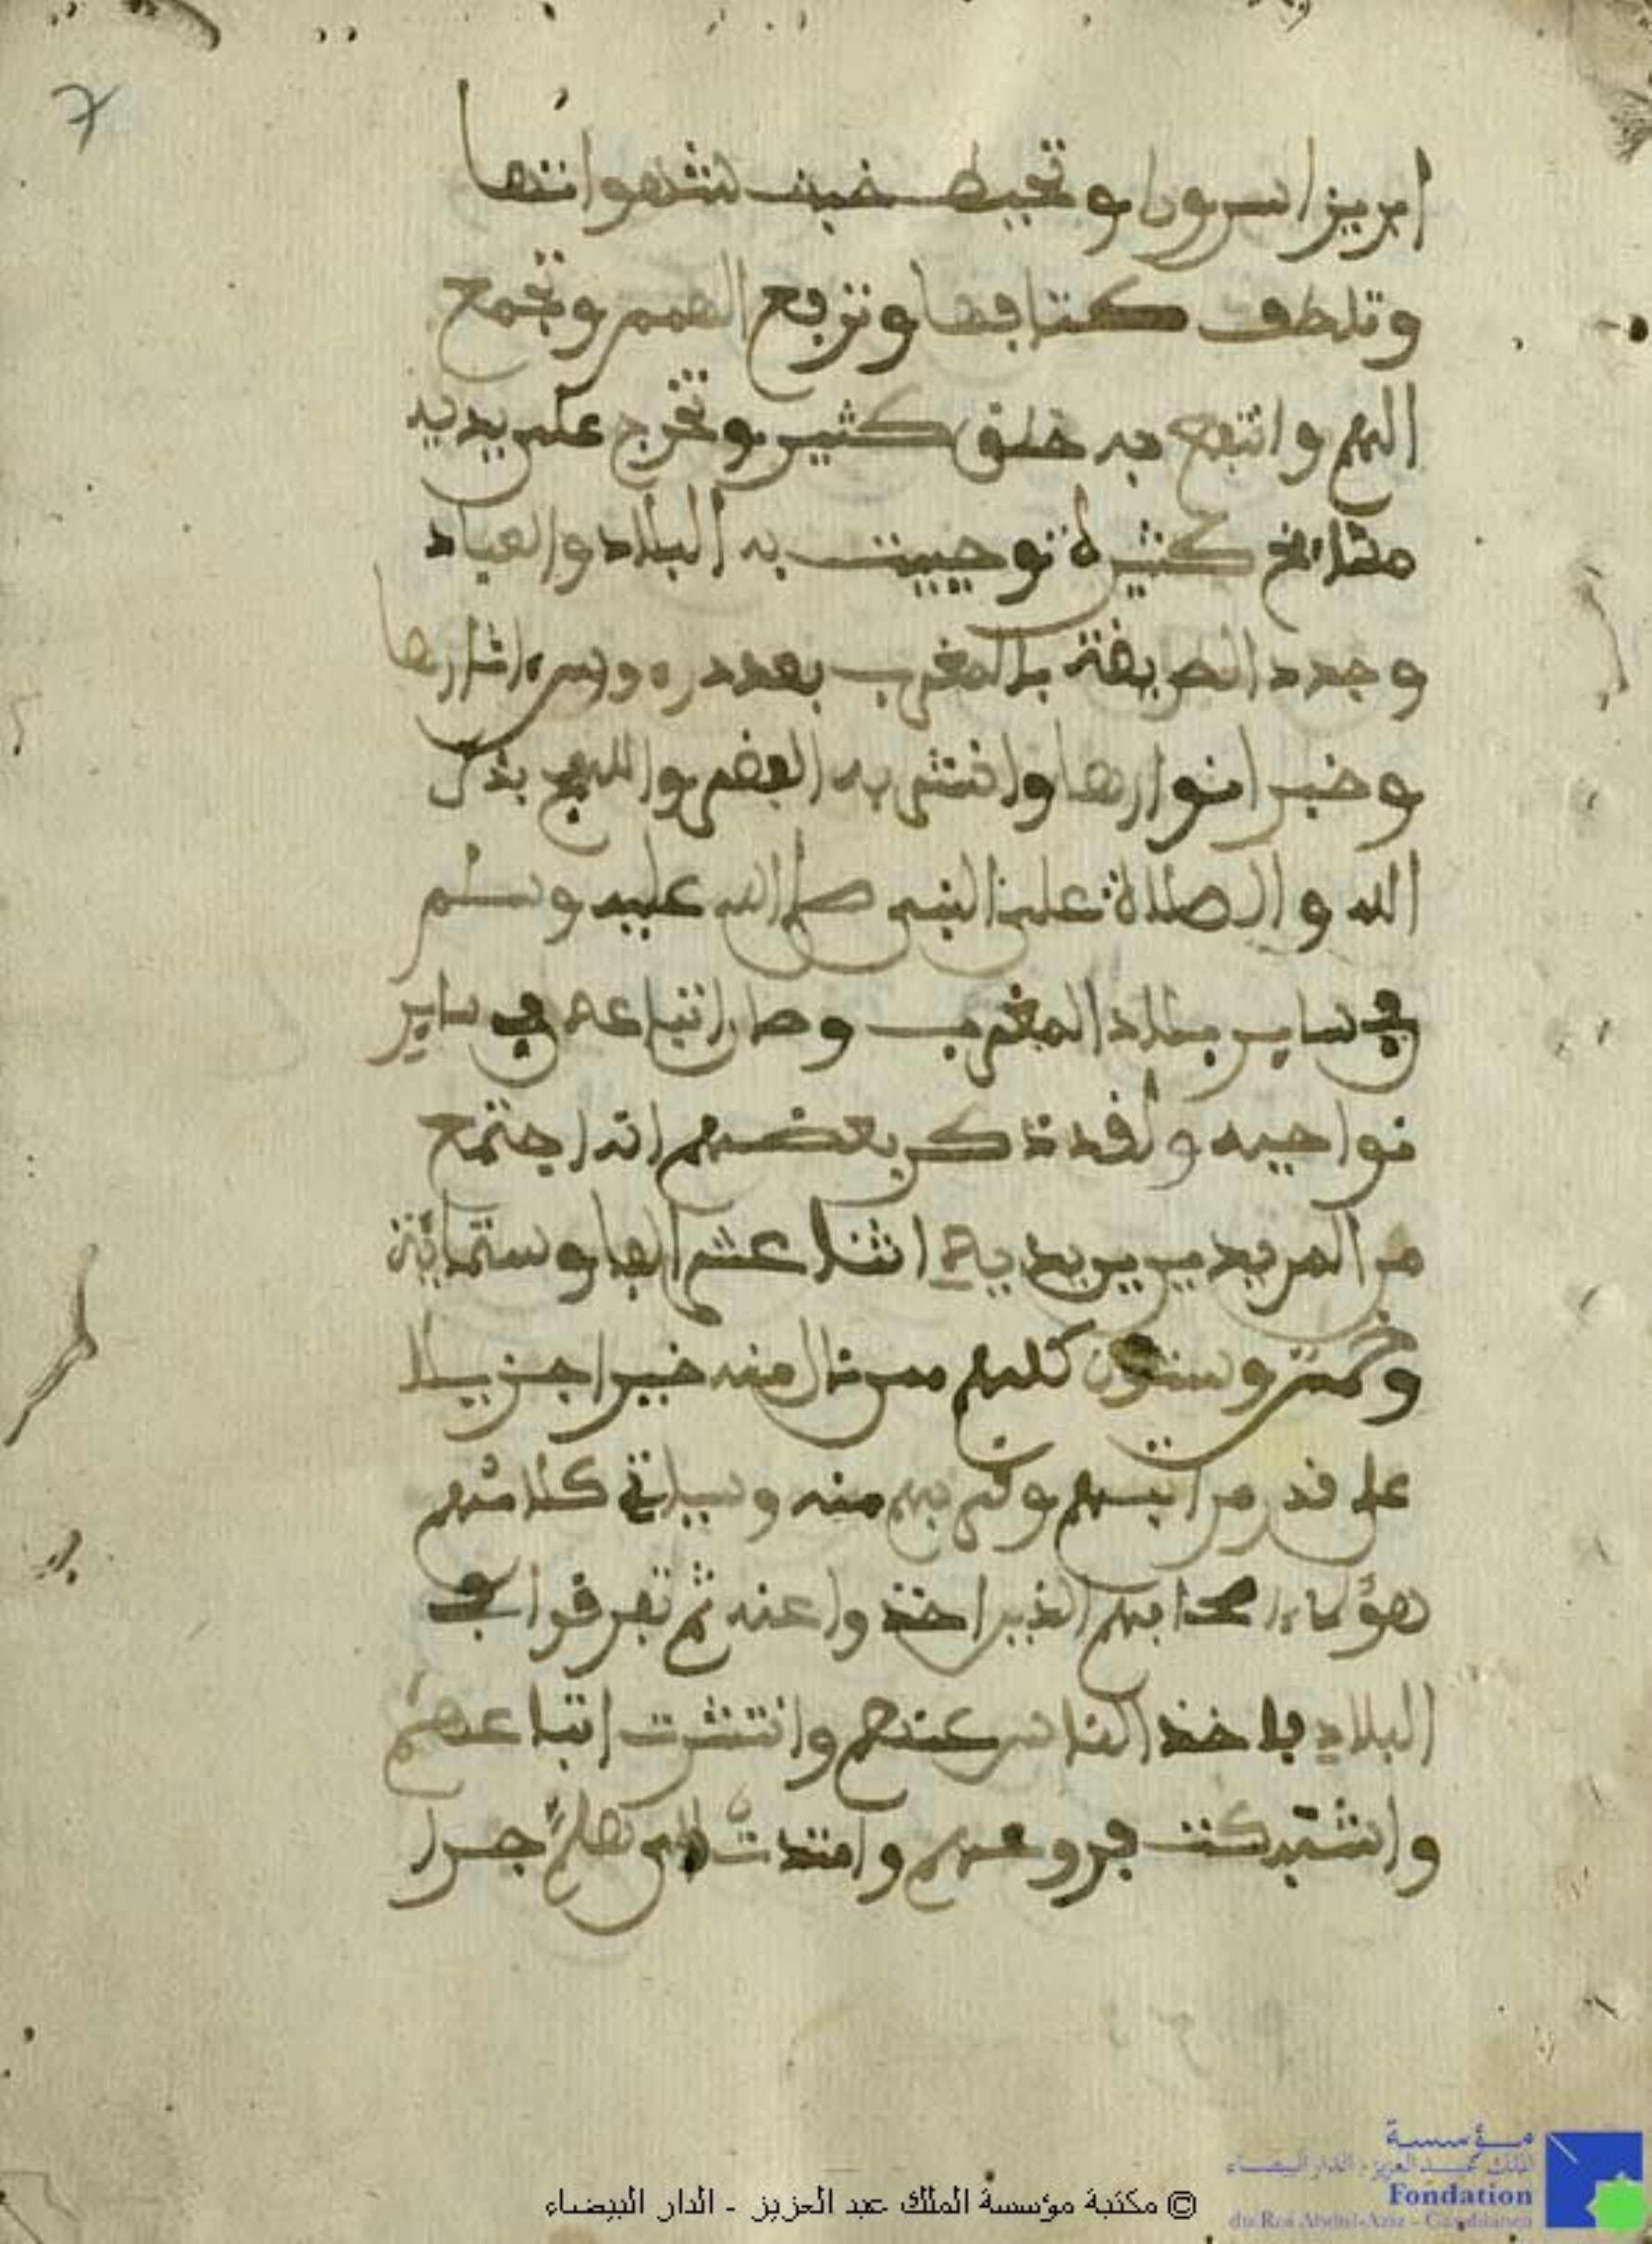 7
ابريزا سويا وتحيط خبث شهواتها
وتلطف كتابفها وترفع الهمم وتجمع
الهم وانتفع به خلق كثير وتخرج على يديه
مشايخ كثيرة وحييت به البلاد والعباد
وجدد الطريقة بالمغرب بعد دروس اثارها
وخبو انوارها وانتشر به الفقر واللهج بذكر
الله والصلاة على النبي صلى الله عليه وسلم
في ساير بلاد المغرب وصار اتباعه في ساير
نواحيه ولقد ذكر بعضهم انه اجتمع
من المريدين بين يديه اثنا عشر الفا وستماية
وخمس وستون كلهم ممن نال منه خيرا جزيلا
على قدر مراتبهم وقربهم منه وسياتي كلامهم
هؤلاء اصحابهم الذين اخذوا عنه ثم تفرقوا في
البلاد فاخذ الناس عنهم وانتشرت اتباعهم
واشتبكت فروعهم وامتدت الى هلم جرا
© مكتبة مؤسسة الملك عبد العزيز - الدار البيضاء
مؤسسة
الملك عبد العزيز - الدار البيضاء
Fondation
du Roi Abdul-Aziz - Casablanca